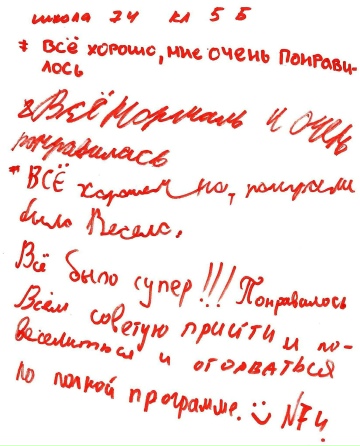 школа 74 кл 5 Б
* всё хорошо, мне очень понрави-
лось
Всё нормаль и очен
понравилась
* ВСЁ
было Весело,
Всё было супер!!! Понравалось
Всем советую прийти и по-
веселиться и оторваться
по полной программе.